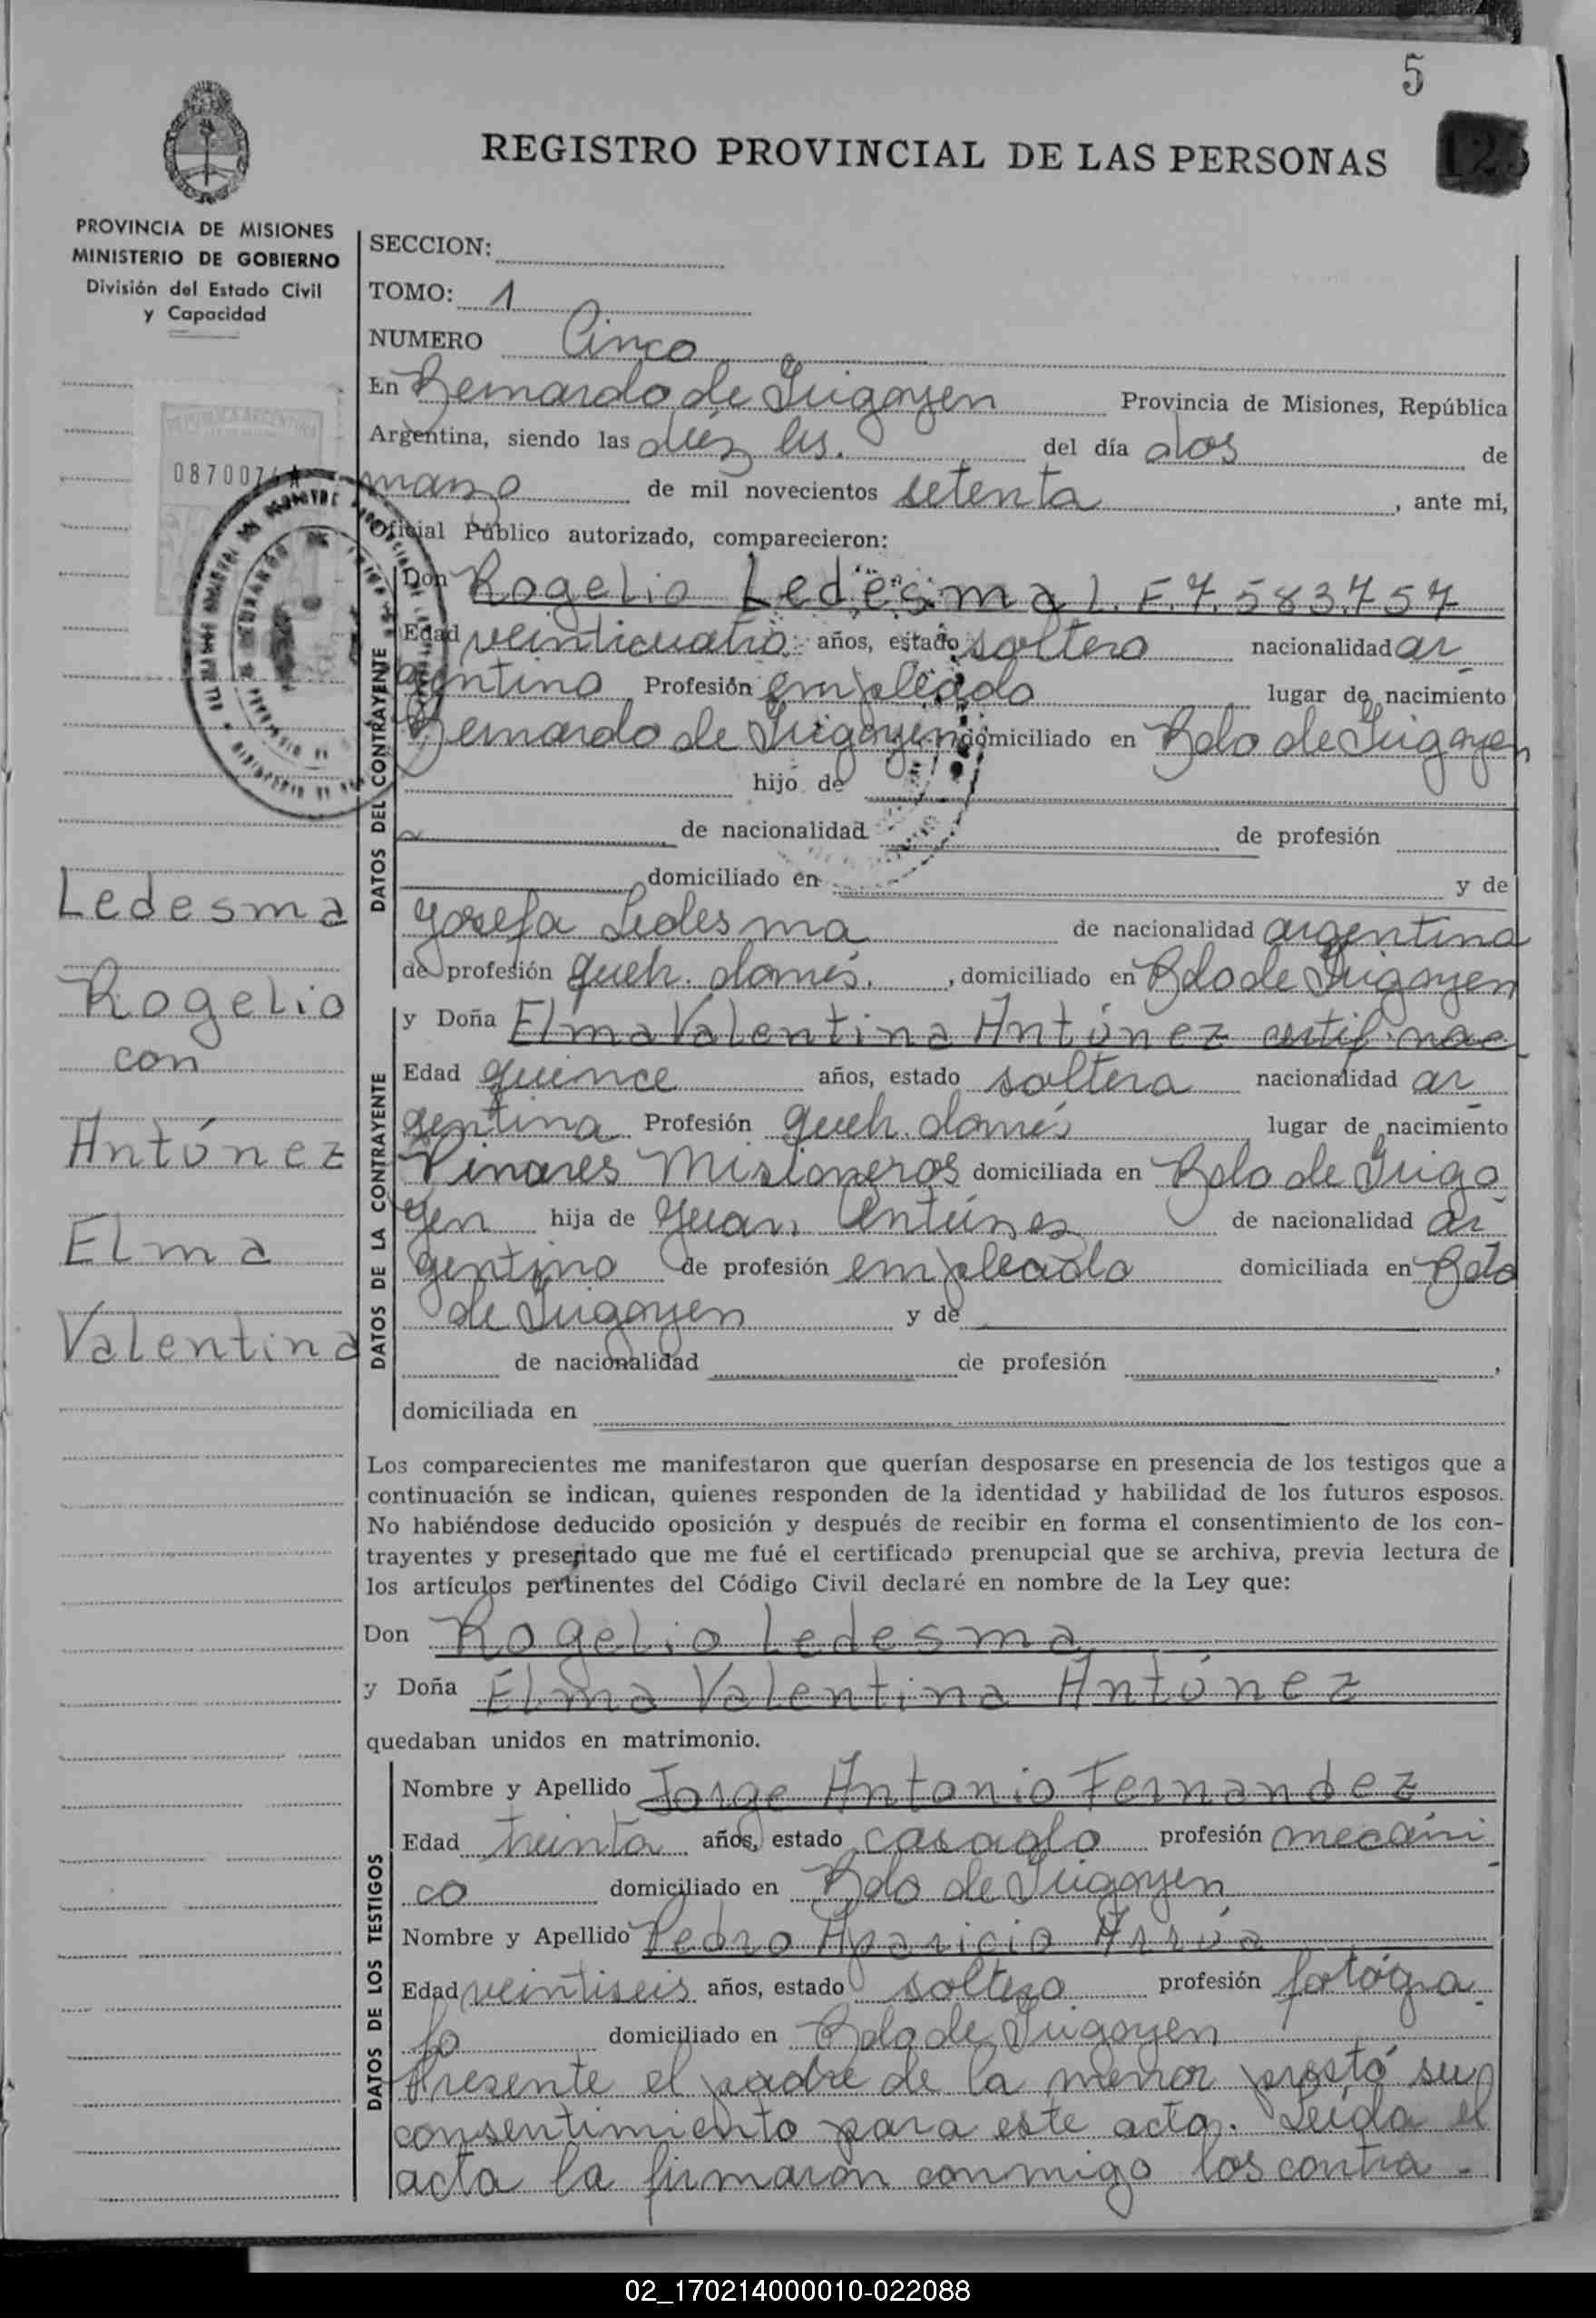 5
REGISTRO PROVINCIAL DE LAS PERSONAS
123
PROVINCIA DE MISIONES
MINISTERIO DE GOBIERNO
División del Estado Civil
y Capacidad
REPUBLICA ARGENTINA
087007
SECCION:
TOMO: 1
NUMERO Cinco
En Bernardo de Irigoyen Provincia de Misiones, República
Argentina, siendo las diéz hs. del día dos de
marzo de mil novecientos setenta, ante mi,
Oficial Público autorizado, comparecieron:
DATOS DEL CONTRAYENTE
Don Rogelio Ledesma L.E. 7.583.757
Edad veinticuatro años, estado soltero nacionalidad ar
gentino Profesión empleado lugar de nacimiento
Bernardo de Irigoyen domiciliado en Bdo de Irigoyen
hijo de
de nacionalidad de profesión
domiciliado en y de
Josefa Ledesma de nacionalidad argentina
de profesión queh. domés., domiciliado en Bdo de Irigoyen
DATOS DE LA CONTRAYENTE
y Doña Elma Valentina Antúnez certif. nac
Edad quince años, estado soltera nacionalidad ar
gentina Profesión queh. domés lugar de nacimiento
Pinares Misioneros domiciliada en Bdo de Irigo
yen hija de Juan Antúnez de nacionalidad ar
gentino de profesión empleado domiciliada en Bdo
de Irigoyen y de
de nacionalidad de profesión ,
domiciliada en
Ledesma
Rogelio
con
Antúnez
Elma
Valentina
Los comparecientes me manifestaron que querían desposarse en presencia de los testigos que a
continuación se indican, quienes responden de la identidad y habilidad de los futuros esposos.
No habiéndose deducido oposición y después de recibir en forma el consentimiento de los con-
trayentes y presentado que me fué el certificado prenupcial que se archiva, previa lectura de
los artículos pertinentes del Código Civil declaré en nombre de la Ley que:
Don Rogelio Ledesma
y Doña Elma Valentina Antúnez
quedaban unidos en matrimonio.
DATOS DE LOS TESTIGOS
Nombre y Apellido Jorge Antonio Fernandez
Edad treinta años, estado casado profesión mecáni
co domiciliado en Bdo de Irigoyen
Nombre y Apellido Pedro Aparicio Arrúa
Edad veintiseis años, estado soltero profesión fotógra
fo domiciliado en Bdo de Irigoyen
Presente el padre de la menor prestó su
consentimiento para este acto. Leída el
acta la firmaron conmigo los contra-
02_170214000010-022088